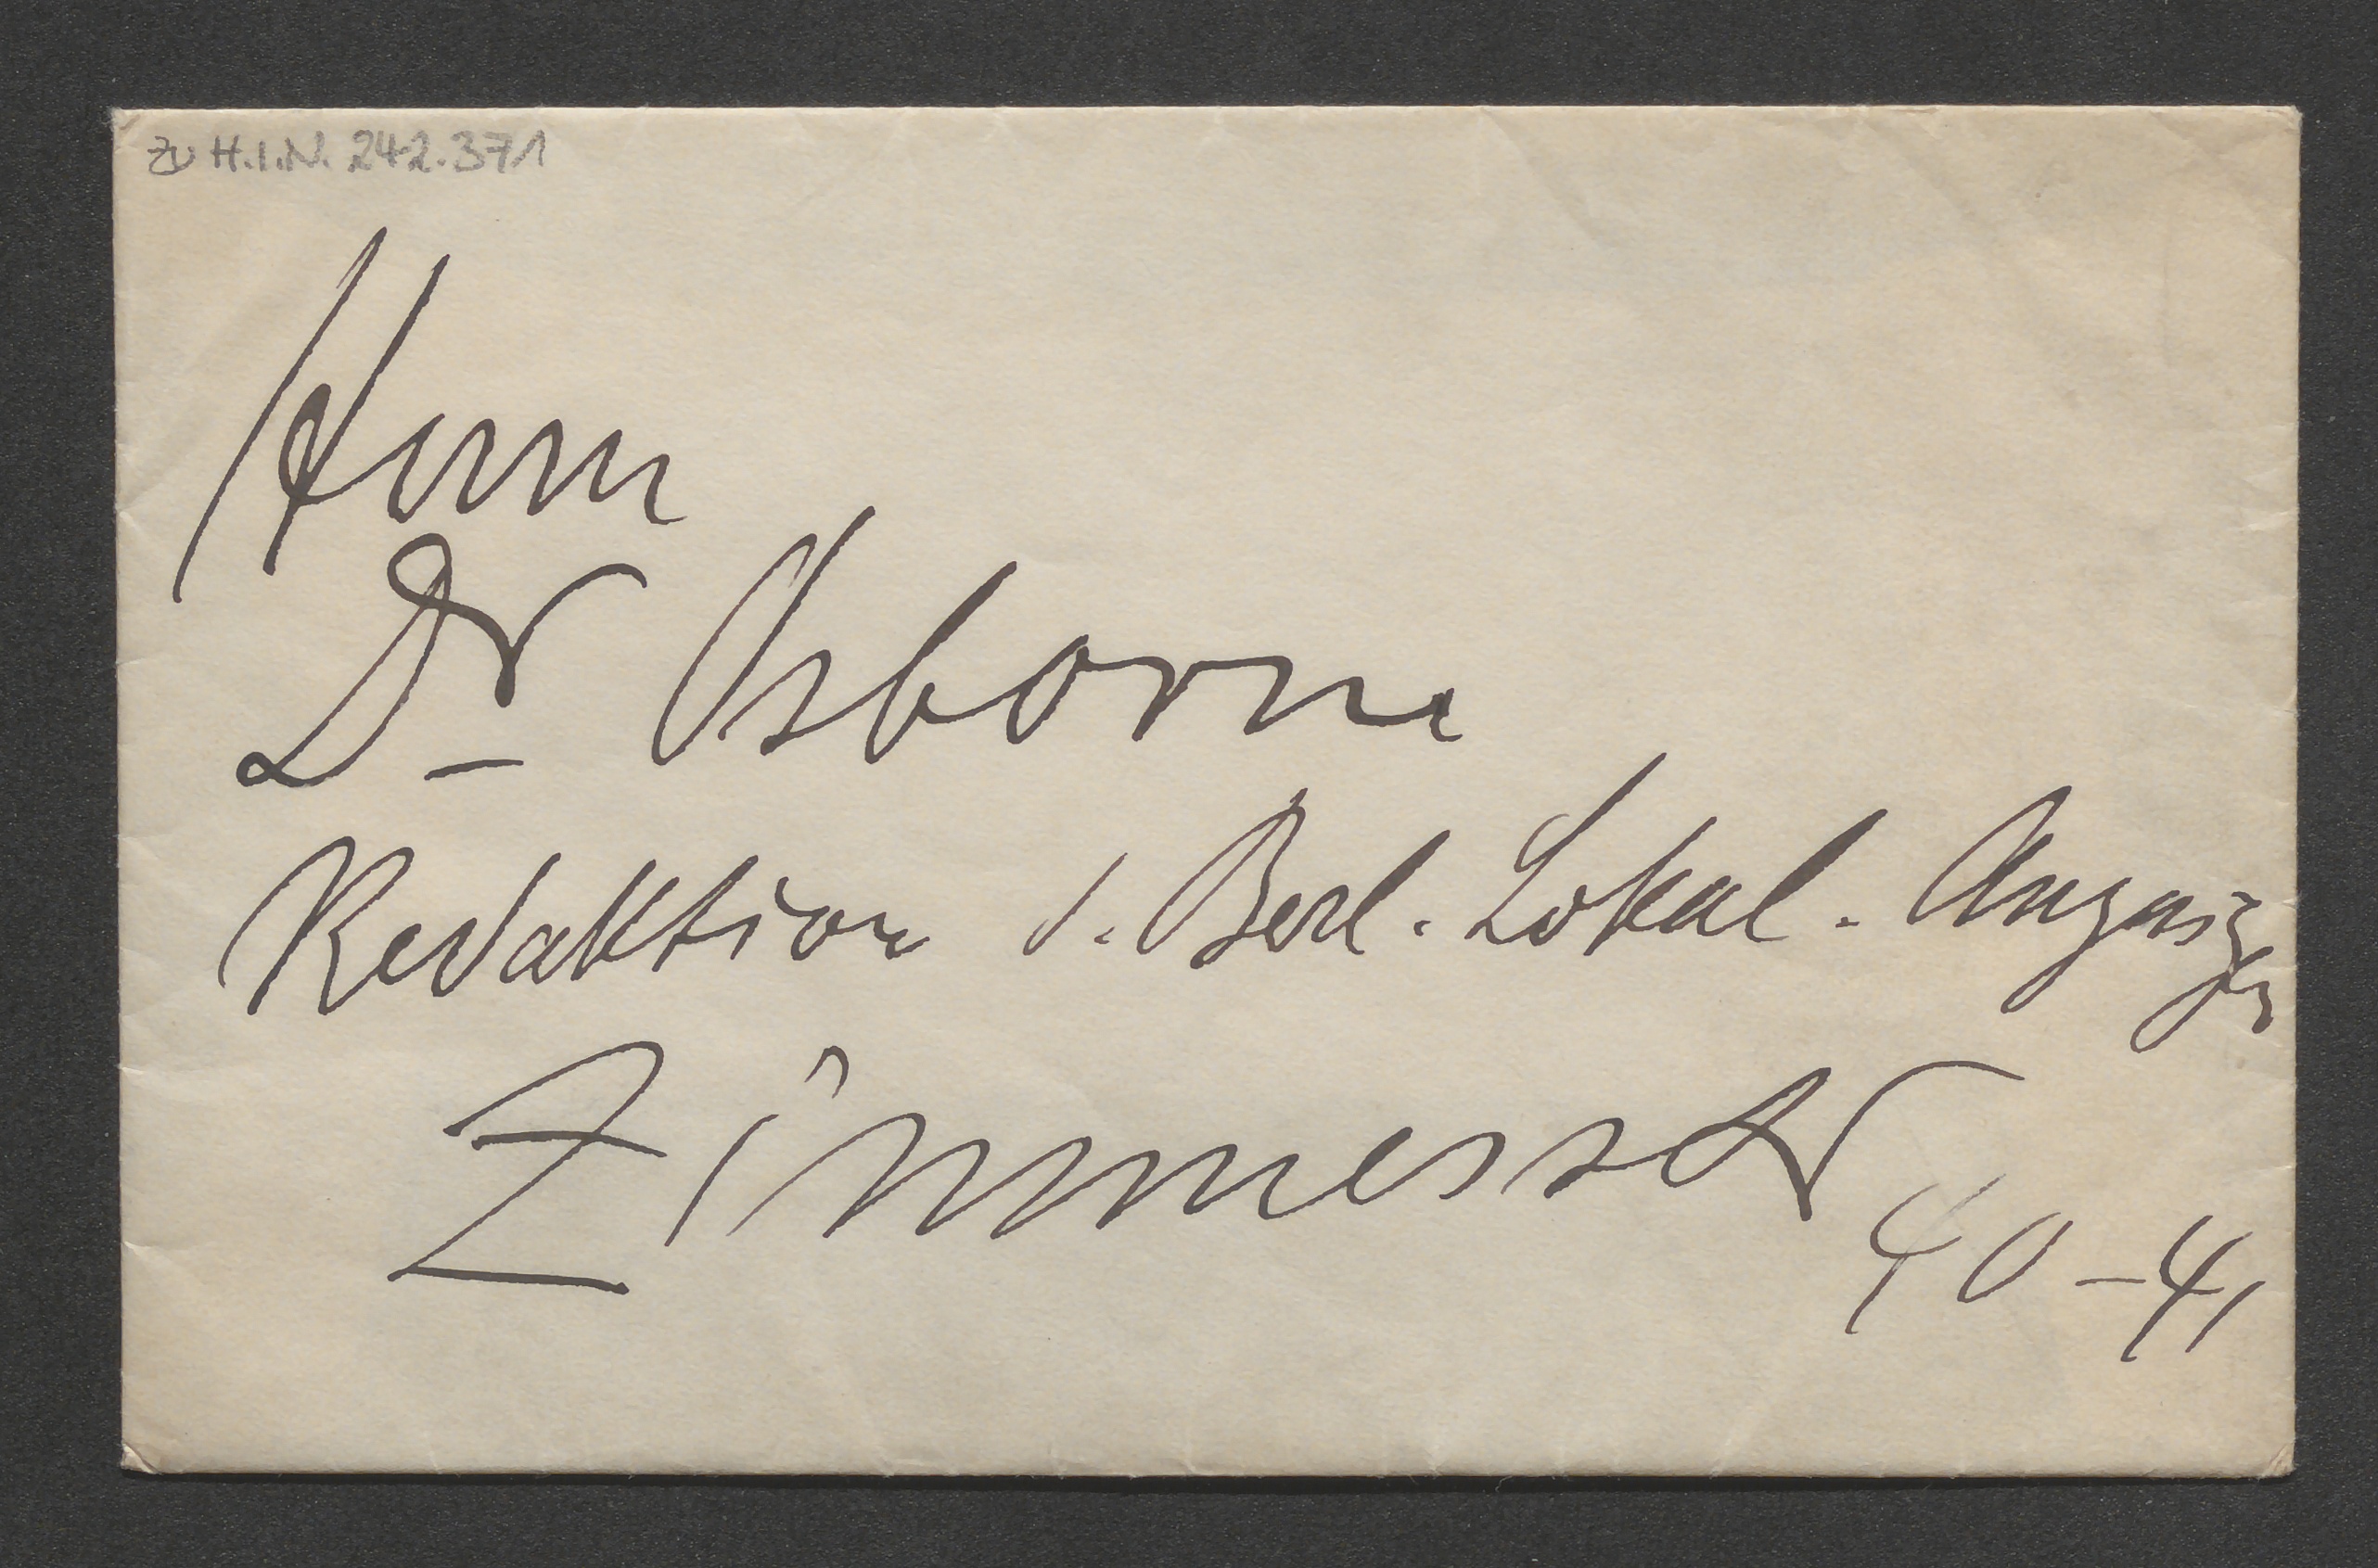 zu H.I.N. 242.371
Herrn
Dr Osborne
Redaktion d. Berl. Lokal-Anzeiger
Zimmerstr
40-41